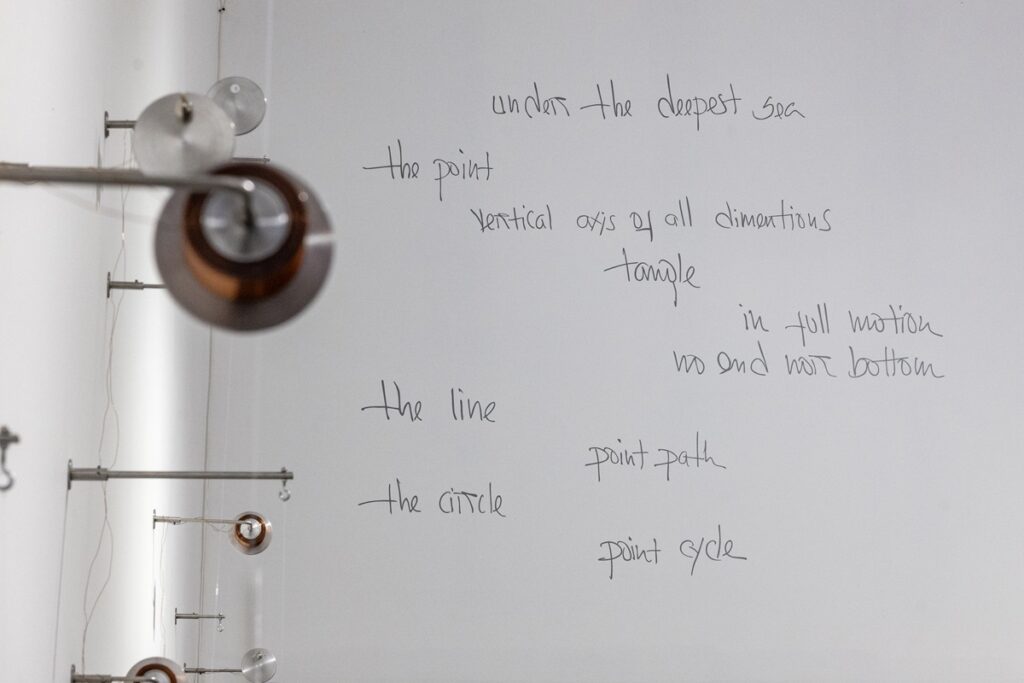 under the deepest sea
the point
vertical axis of all dimentions
tangle
in full motion
no end nor bottom
the line
point path
the circle
point cycle